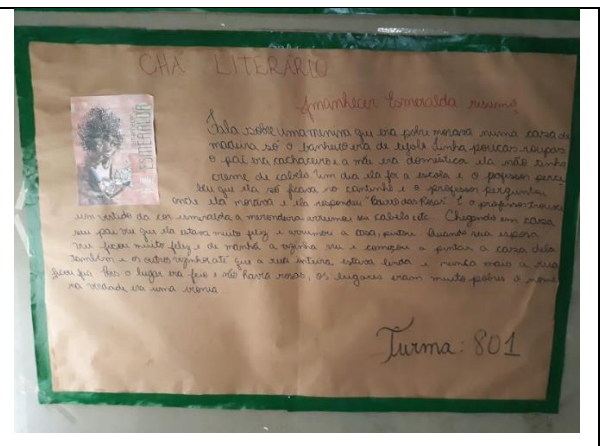 CHÁ LITERÁRIO
Amanhecer Esmeralda resumo
ESMERALDA
Fala sobre uma menina que era pobre morava numa casa de
madeira só o banheiro era de tijolo tinha poucas roupas
o pai era cachaceiro a mãe era doméstica ela não tinha
creme de cabelo um dia ela foi a escola e o professor perce
beu que ela só ficava no cantinho e o professor perguntou
onde ela morava e ela respondeu "Bairro das Rosas" E o professor trouxe
um vestido da cor esmeralda a merendeira arrumou seu cabelo etc. Chegando em casa
seu pai viu que ela estava muito feliz e arrumou a casa, pintou. Quando sua esposa
viu ficou muito feliz e de manhã a vizinha viu e começou a pintar a casa dela
também e os outros vizinhos até que a rua inteira estava linda e nunca mais a rua
ficou feia. Mas o lugar era feio e não havia rosas, os lugares eram muito pobres o nome
na verdade era uma ironia
Turma: 801